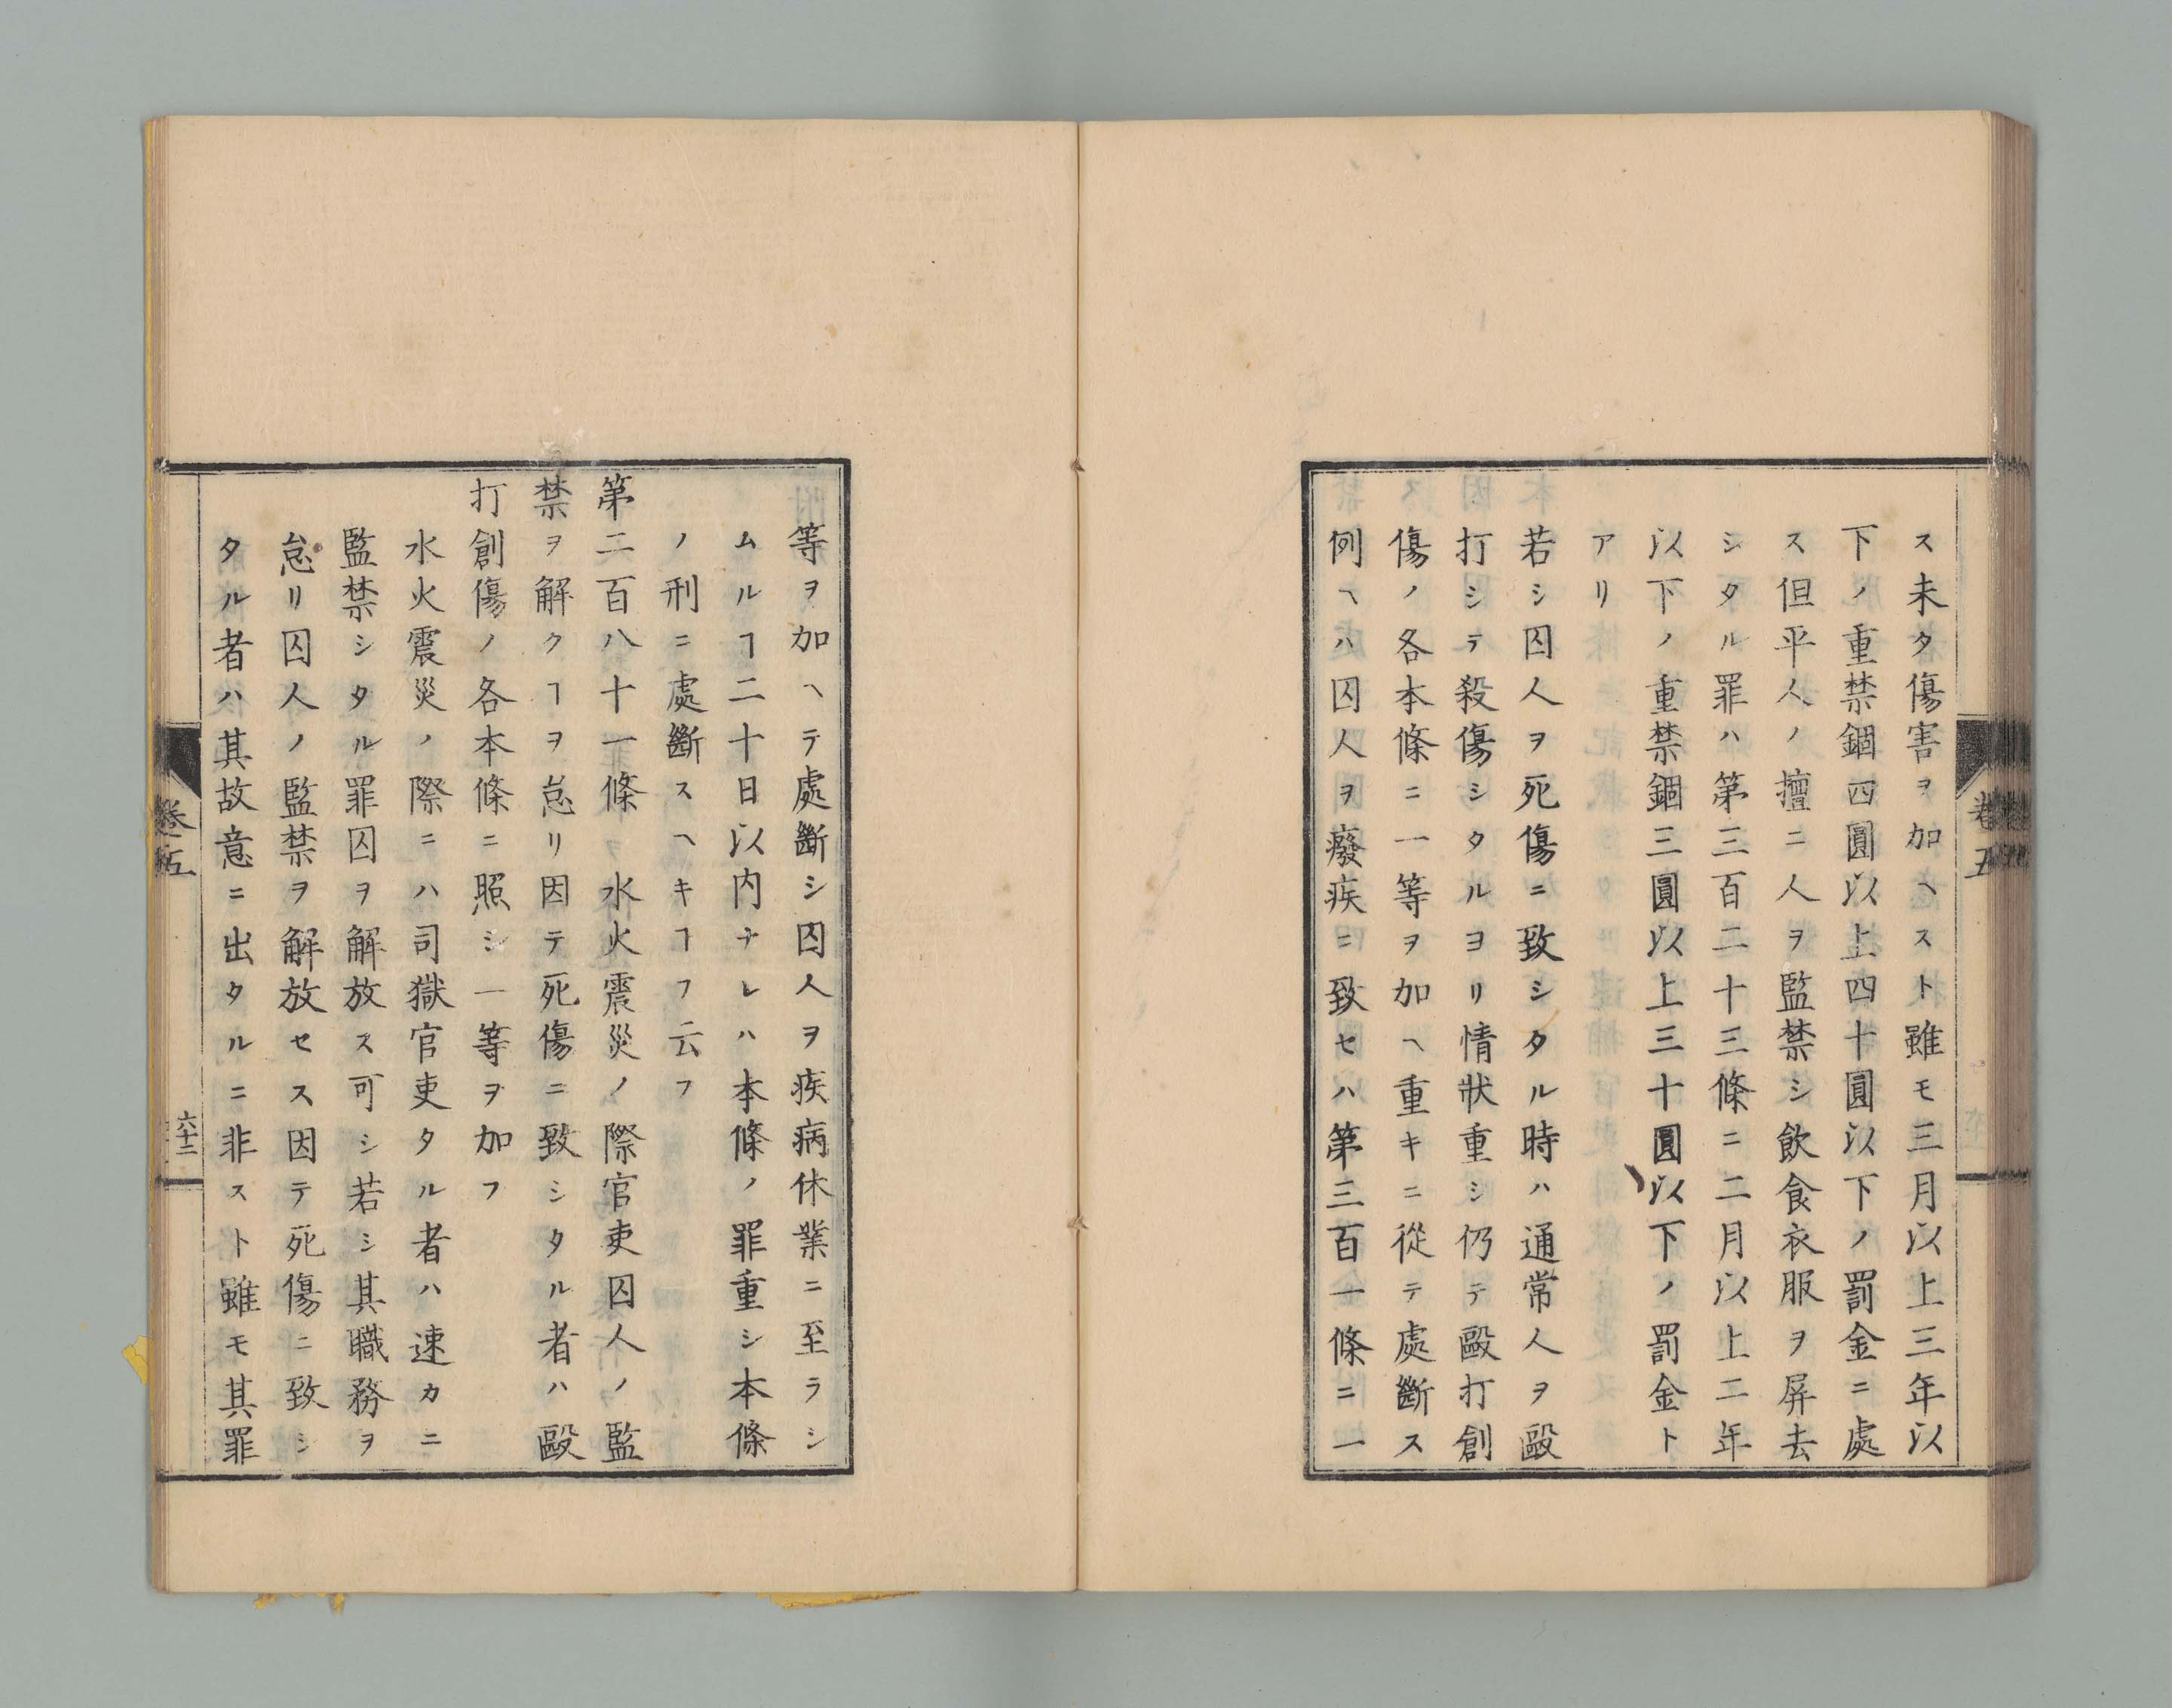 ス未タ傷害ヲ加ヘスト雖モ三月以上三年以
下ノ重禁錮四圓以上四十圓以下ノ罰金ニ處
ス但平人ノ擅ニ人ヲ監禁シ飲食衣服ヲ屏去
シタル罪ハ第三百二十三條ニ二月以上二年
以下ノ重禁錮三圓以上三十圓以下ノ罰金ト
アリ
若シ囚人ヲ死傷ニ致シタル時ハ通常人ヲ毆
打シテ殺傷シタルヨリ情狀重シ仍テ毆打創
傷ノ各本條ニ一等ヲ加ヘ重キニ從テ處斷ス
例ヘハ囚人ヲ癈疾ニ致セハ第三百一條ニ一
卷五
等ヲ加ヘテ處斷シ囚人ヲ疾病休業ニ至ラシ
ムルヿ二十日以内ナレハ本條ノ罪重シ本條
ノ刑ニ處斷スヘキヿフ云フ
第二百八十一條 水火震災ノ際官吏囚人ノ監
禁ヲ解クヿヲ怠リ因テ死傷ニ致シタル者ハ毆
打創傷ノ各本條ニ照シ一等ヲ加フ
水火震災ノ際ニハ司獄官吏タル者ハ速カニ
監禁シタル罪囚ヲ解放ス可シ若シ其職務ヲ
怠リ囚人ノ監禁ヲ解放セス因テ死傷ニ致シ
タル者ハ其故意ニ出タルニ非スト雖モ其罪
卷五
六十二